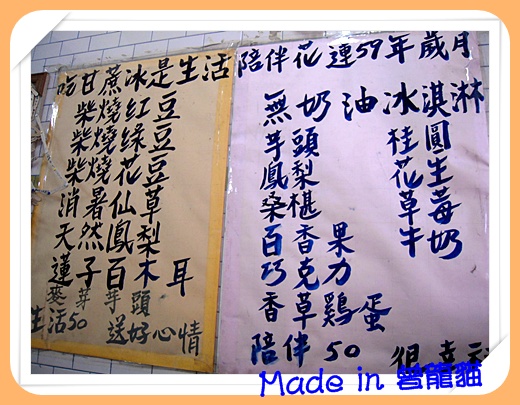 吃甘蔗冰是生活
柴燒紅豆
柴燒綠豆
柴燒花豆
消暑仙草
天然鳳梨
蓮子百木耳
麥芽芋頭
生活50 送好心情
陪伴花連59年歲月
無奶油冰淇淋
芋頭 桂圓
鳳梨 花生
桑椹 草莓
百香果 牛奶
巧克力
香草雞蛋
陪伴50 很幸
Made in 曾龍貓